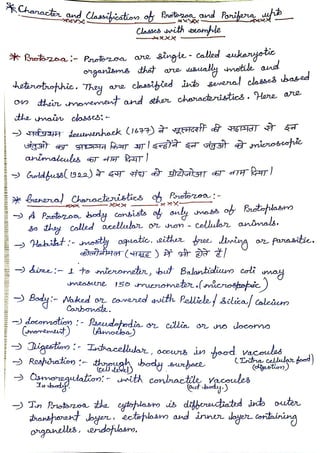 * Character and Classification of Protozoa and Porifera upto
Classes with example
* Protozoa :- Protozoa are single - celled eukaryotic
organisms that are usually motile and
heterotrophic. They are classified into several classes based
on their movement and other characteristics. Here are
the main classes:-
→ सर्वप्रथम Leeuwenhock (1677) ने सूक्ष्मदर्शी की सहायता से इन
जंतुओं का अध्ययन किया था। इन्होंने इन जंतुओं को microscopic
animalcules का नाम दिया।
→ Goldfuss (1922) ने इस संघ को प्रोटोजोआ का नाम दिया।
* General Characteristics of Protozoa:-
→ A Protozoa body consists of only mass of Protoplasm
so they called acellular or non - cellular animals.
→ Habitat:- mostly aquatic, either free living or parasitic.
में भी होते हैं।
→ Size:- 1 to micrometer, but Balantidium coli may
measure 150 micrometer. (microscopic)
→ Body:- Naked or covered with Pellicle / Silica / calcium
Carbonate.
→ Locomotion :- Pseudopodia or cillia or no locomo
(movement) (Amoeba)
→ Digestion:- Intracellular, occurs in food vacoules
→ Respiration:- through body surface (Intra cellular food)
(cell level) (digestion)
→ Osmoregulation:- with contractile vacoules
In body (out body)
→ In Protozoa the cytoplasm is differentiated into outer
transparent layer, ectoplasm and inner layer containing
organelles, endoplasm.